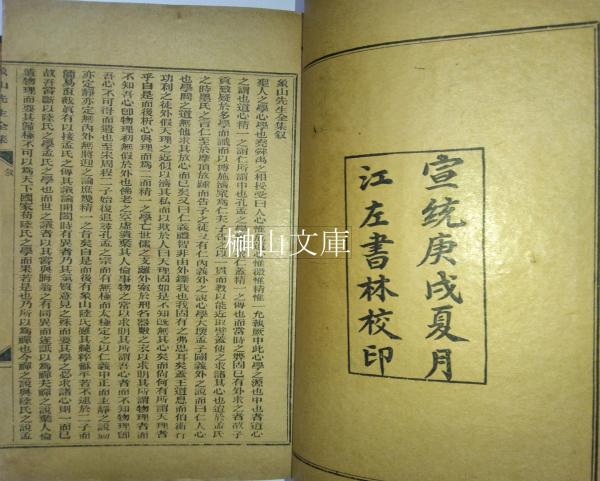 宣統庚戌夏月
江左書林校印
象山先生全集叙
聖人之學心學也堯舜禹之相授受曰人心惟危道心惟微惟精惟一允執厥中此心學之源也中也者道心
之謂也道心精一之謂仁所謂中也孔孟之學惟務求仁蓋精一之傳也而當時之弊固已有外求之者故子
貢致疑於多學而識而以博施濟眾為仁夫子告之以一貫而教以能近取譬蓋使之求諸其心也迨於孟氏
之時墨氏之言仁至於摩頂放踵而告子之徒又有仁內義外之說心學大壞孟子闢義外之說而曰仁人心
也學問之道無他求其放心而已矣又曰仁義禮智非由外鑠我也我固有之弗思耳矣蓋王道息而伯術行
功利之徒外假天理之近似以濟其私而以欺於人曰天理固如是不知既無其心矣而尚何有所謂天理者
乎自是而後析心與理而為二而精一之學亡世儒之支離外索於刑名器數之末以求明其所謂物理者而
不知吾心即物理初無假於外也佛老之空虛遺棄其人倫事物之常以求明其所謂吾心者而不知物理即
吾心不可得而遺也至宋周程二子始復追尋孔孟之宗而有無極而太極定之以仁義中正而主靜之說動
亦定靜亦定無內外無將迎之論庶幾精一之旨矣自是而後有象山陸氏雖其純粹和平若不逮於二子而
簡易直截真有以接孟氏之傳其議論開闔時有異者乃其氣質意見之殊而要其學之必求諸心則一而已
故吾嘗斷以陸氏之學孟氏之學也而世之議者以其嘗與晦翁之有同異而遂詆以為禪夫禪之說棄人倫
遺物理而要其歸極不可以為天下國家苟陸氏之學而果若是也乃所以為禪也今禪之說與陸氏之說孟
象山先生全集
叙
榊山文庫